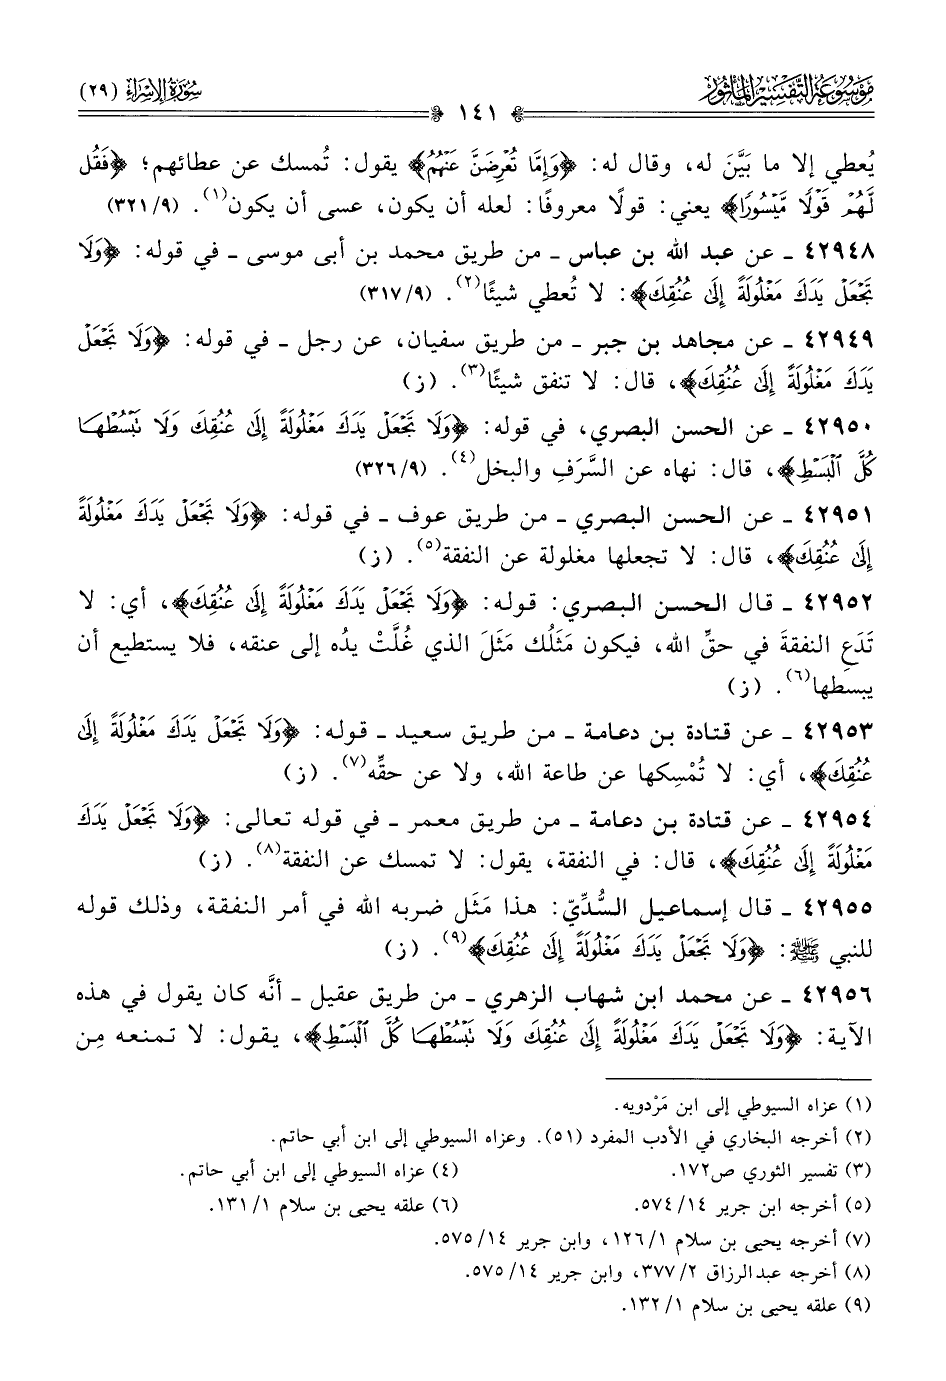 مَوْسُوعَةُ التَّفْسِيرِ المَأْثُورِ
سُورَةُ الإِسْرَاءِ (٢٩)
١٤١
يُعطي إلا ما بَيَّنَ له، وقال له: ﴿وَإِمَّا تُعْرِضَنَّ عَنْهُمُ﴾ يقول: تُمسك عن عطائهم؛ ﴿فَقُل
لَّهُمْ قَوْلًا مَّيْسُورًا﴾ يعني: قولًا معروفًا: لعله أن يكون، عسى أن يكون(١). (٣٢١/٩)
٤٢٩٤٨ ـ عن عبد الله بن عباس ـ من طريق محمد بن أبي موسى ـ في قوله: ﴿وَلَا
تَجْعَلْ يَدَكَ مَغْلُولَةً إِلَىٰ عُنُقِكَ﴾: لا تُعطي شيئًا(٢). (٣١٧/٩)
٤٢٩٤٩ ـ عن مجاهد بن جبر ـ من طريق سفيان، عن رجل ـ في قوله: ﴿وَلَا تَجْعَلْ
يَدَكَ مَغْلُولَةً إِلَىٰ عُنُقِكَ﴾، قال: لا تنفق شيئًا(٣). (ز)
٤٢٩٥٠ ـ عن الحسن البصري، في قوله: ﴿وَلَا تَجْعَلْ يَدَكَ مَغْلُولَةً إِلَىٰ عُنُقِكَ وَلَا تَبْسُطْهَا
كُلَّ ٱلْبَسْطِ﴾، قال: نهاه عن السَّرَفِ والبخل(٤). (٣٢٦/٩)
٤٢٩٥١ ـ عن الحسن البصري ـ من طريق عوف ـ في قوله: ﴿وَلَا تَجْعَلْ يَدَكَ مَغْلُولَةً
إِلَىٰ عُنُقِكَ﴾، قال: لا تجعلها مغلولة عن النفقة(٥). (ز)
٤٢٩٥٢ ـ قال الحسن البصري: قوله: ﴿وَلَا تَجْعَلْ يَدَكَ مَغْلُولَةً إِلَىٰ عُنُقِكَ﴾، أي: لا
تَدَعِ النفقةَ في حقِّ الله، فيكون مَثَلُك مَثَلَ الذي غُلَّتْ يدُه إلى عنقه، فلا يستطيع أن
يبسطها(٦). (ز)
٤٢٩٥٣ ـ عن قتادة بن دعامة ـ من طريق سعيد ـ قوله: ﴿وَلَا تَجْعَلْ يَدَكَ مَغْلُولَةً إِلَىٰ
عُنُقِكَ﴾، أي: لا تُمْسِكها عن طاعة الله، ولا عن حقِّه(٧). (ز)
٤٢٩٥٤ ـ عن قتادة بن دعامة ـ من طريق معمر ـ في قوله تعالى: ﴿وَلَا تَجْعَلْ يَدَكَ
مَغْلُولَةً إِلَىٰ عُنُقِكَ﴾، قال: في النفقة، يقول: لا تمسك عن النفقة(٨). (ز)
٤٢٩٥٥ ـ قال إسماعيل السُّدِّيّ: هذا مَثَل ضربه الله في أمر النفقة، وذلك قوله
للنبي ﷺ: ﴿وَلَا تَجْعَلْ يَدَكَ مَغْلُولَةً إِلَىٰ عُنُقِكَ﴾(٩). (ز)
٤٢٩٥٦ ـ عن محمد ابن شهاب الزهري ـ من طريق عقيل ـ أنَّه كان يقول في هذه
الآية: ﴿وَلَا تَجْعَلْ يَدَكَ مَغْلُولَةً إِلَىٰ عُنُقِكَ وَلَا تَبْسُطْهَا كُلَّ ٱلْبَسْطِ﴾، يقول: لا تمنعه مِن
(١) عزاه السيوطي إلى ابن مَرْدويه.
(٢) أخرجه البخاري في الأدب المفرد (٥١). وعزاه السيوطي إلى ابن أبي حاتم.
(٣) تفسير الثوري ص١٧٢. (٤) عزاه السيوطي إلى ابن أبي حاتم.
(٥) أخرجه ابن جرير ١٤/ ٥٧٤. (٦) علقه يحيى بن سلام ١/ ١٣١.
(٧) أخرجه يحيى بن سلام ١/ ١٢٦، وابن جرير ١٤/ ٥٧٥.
(٨) أخرجه عبد الرزاق ٢/ ٣٧٧، وابن جرير ١٤/ ٥٧٥.
(٩) علقه يحيى بن سلام ١/ ١٣٢.